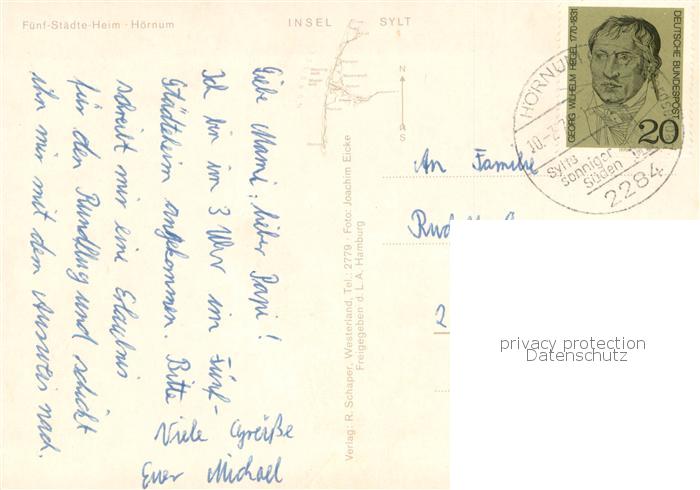 Fünf-Städte-Heim · Hörnum
INSEL SYLT
N
S
Liebe Mami, lieber Papi!
Ich bin im 3 Uhr im Fünf-
Städteheim angekommen. Bitte
schreibt mir eine Erlaubnis
für den Rundflug und schickt
ihn mir mit dem Ausweis nach.
Viele Grüße
Euer Michael
Verlag: R. Schaper, Westerland, Tel.: 2779 · Foto: Joachim Eicke
Freigegeben d. L. A. Hamburg
An Familie
2
GEORG WILHELM HEGEL 1770-1831
DEUTSCHE BUNDESPOST
20
HÖRNUM
10.-7.
Sylts
sonniger
Süden
2284
privacy protection
Datenschutz